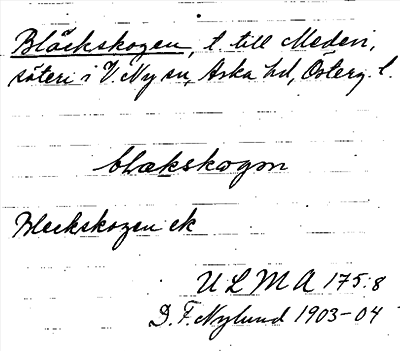 Bläckskogen, t. till Medevi,
säteri i V. Ny sn, Aska hd, Österg. l.
blækskogən
Bleckskogen ek
ULMA 175:8
D. F. Nylund 1903-04